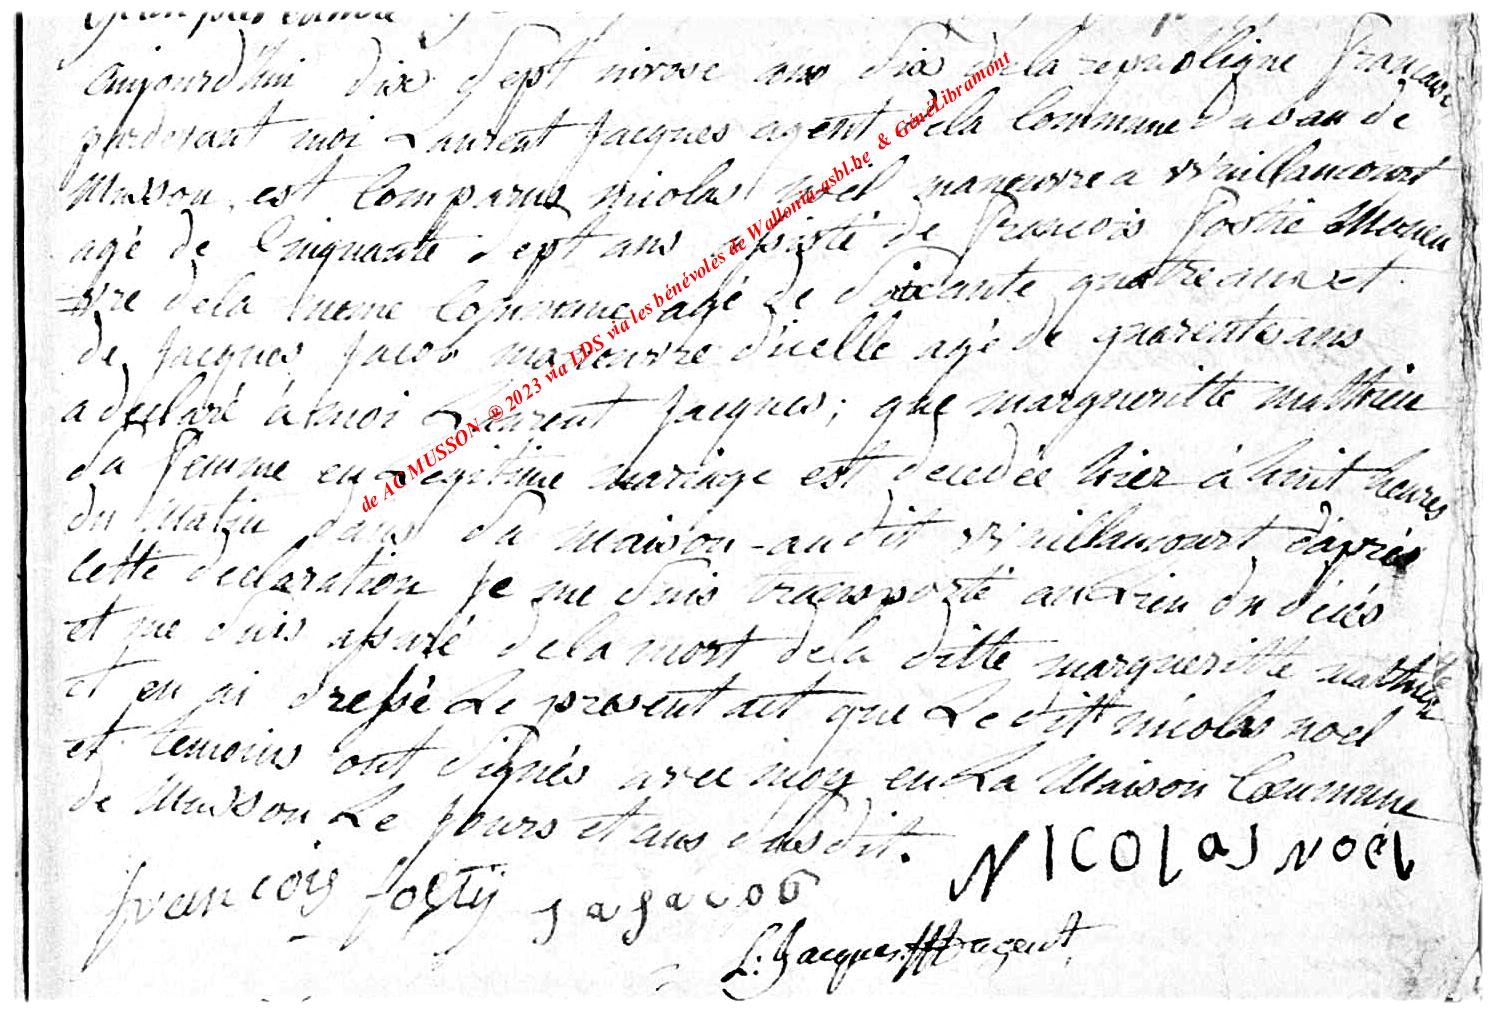 aujourd'hui dix sept nivose ans dix de la republique francaise
parderant moi Laurent Jacques agent dela Commune Dasau de
Musson, est Comparus nicolas noël maneuvre a Willancourt
agé de Cinquante Sept ans assisté de francois fostie Maneu
vre dela meme Commune agé de Soixante quatre ans et
de Jacques Jacob maneuvre d'icelle agé de quarente ans
a declaré à moi Laurent Jacques; que margueritte mathieu
Sa femme en Legitime mariage est decedée hier à huit heures
du Matin dans Sa maison audit Willancourt d'après
Cette declaration Je me Suis transporté au Lieu du décés
et me Suis assuré dela mort dela ditte margueritte mathieu
et en ai dressé Le present act que Le dit nicolas noel
et temoins ont Signés avec moy en La Maison Commune
de Musson Le Jours et ans Susdit.
NICOLAS NOEL
francois fosty J a Jacob
L: Jacques agent
de AC MUSSON ® 2023 via LDS via les bénévoles de Wallonia-asbl.be & GénéLibramont